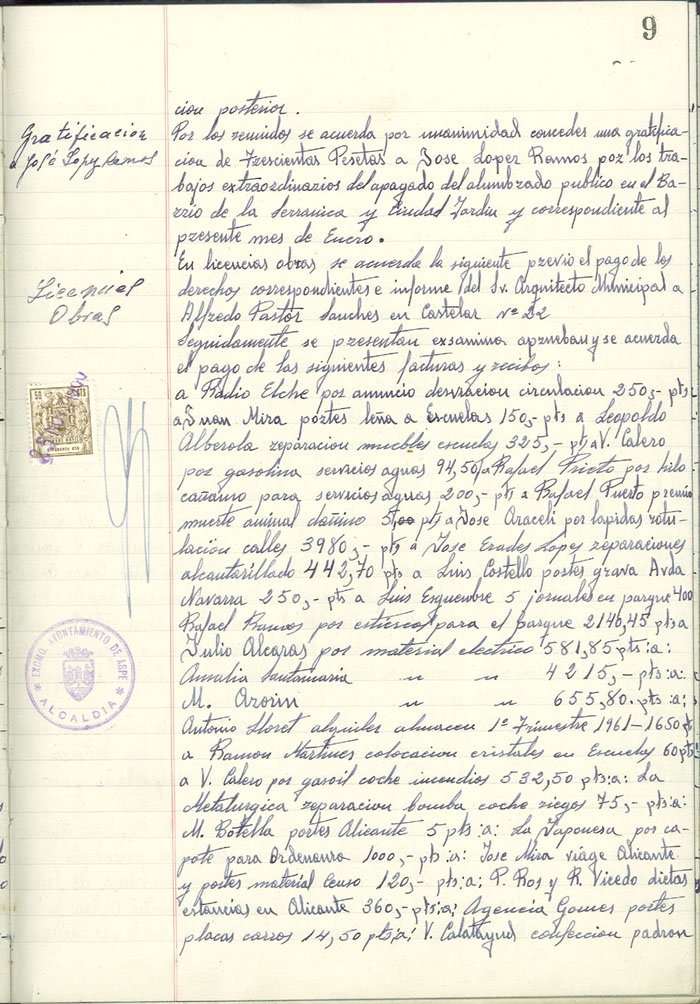 9
cion posterior.
Gratificacion
a José Lopez Ramos
Por los reunidos se acuerda por unanimidad concedes una gratifica-
cion de Trescientas Pesetas a Jose Loper Ramos por los tra-
bajos extraordinarios del apagado del alumbrado publico en el Ba-
rrio de la Serranica y Ciudad Jardin y correspondiente al
presente mes de Enero.
Licencias
Obras
En licencias obras se acuerda la siguiente previo el pago de los
derechos correspondientes e informe del Sr. Arquitecto Municipal a
Alfredo Pastor Sanches en Castelar nº 22
Seguidamente se presentan exsamina aprueban y se acuerda
el pago de las siguientes facturas y recibos:
a Radio Elche por anuncio desviacion circulacion 250,- pts
a Juan Mira portes leña a Escuelas 150,- pts a Leopoldo
Alberola reparacion muebles escuelas 325,- pts a V. Calero
por gasolina servicios aguas 94,50 a Rafael Prieto por hilo
cañamo para servicios aguas 200,- pts a Rafael Puerto premio
muerte animal dañino 5,00 pts a Jose Araceli por lapidas rotu-
lacion calles 3980,- pts a Jose Erades Lopes reparaciones
alcantarillado 442,70 pts a Luis Costello portes grava Avda
Navarra 250,- pts a Luis Esquembre 5 jornales en parque 400
Rafael Ramos por estiercol para el parque 2140,45 pts a
Julio Alcaras por material electrico 581,85 pts: a:
Amalia Santamaria " " 4215,- pts: a:
M. Azorin " " 655,80. pts: a:
Antonio Lloret alquiler almacen 1º Trimestre 1961 - 1650 pts
a Ramon Martines colocacion cristales en Escuelas 60 pts
a V. Calero por gasoil coche incendios 532,50 pts: a: La
Metalurgica reparacion bomba coche riegos 75,- pts: a:
M. Botella portes Alicante 5 pts: a: La Japonesa por ca-
pote para Ordenanza 1000,- pts: a: Jose Mira viage Alicante
y portes material Censo 120,- pts: a; P. Ros y R. Vicedo dietas
estancias en Alicante 360,- pts; a; Agencia Gomes portes
placas carros 14,50 pts; a; V. Calatayud confeccion padron
50 CTS
EXCMO. AYUNTAMIENTO DE ASPE
* ALCALDIA *